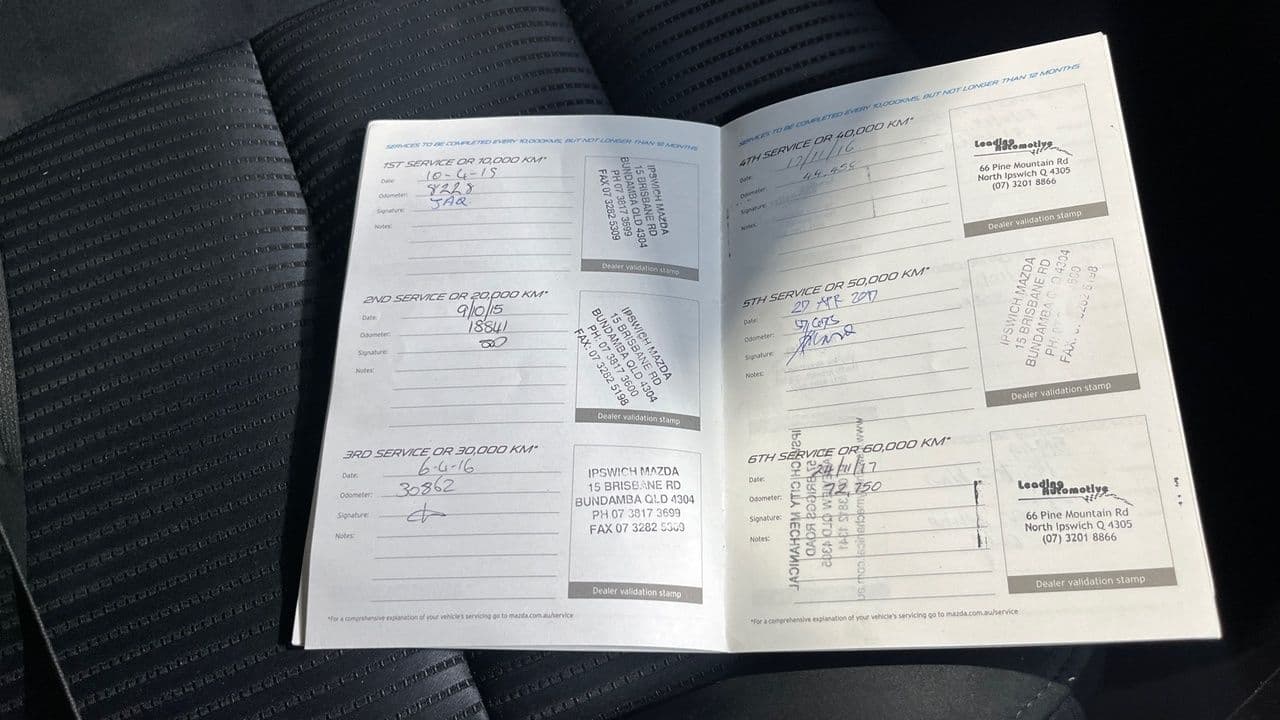 SERVICES TO BE COMPLETED EVERY 10,000KMS, BUT NOT LONGER THAN 12 MONTHS
1ST SERVICE OR 10,000 KM*
Date: 10-4-15
Odometer: 8228
Signature: JAQ
Notes:
IPSWICH MAZDA
15 BRISBANE RD
BUNDAMBA QLD 4304
PH 07 3817 3699
FAX 07 3282 5309
Dealer validation stamp
2ND SERVICE OR 20,000 KM*
Date: 9/10/15
Odometer: 18841
Signature:
Notes:
IPSWICH MAZDA
15 BRISBANE RD
BUNDAMBA QLD 4304
PH: 07 3817 3600
FAX: 07 3282 5198
Dealer validation stamp
3RD SERVICE OR 30,000 KM*
Date: 6-4-16
Odometer: 30862
Signature:
Notes:
IPSWICH MAZDA
15 BRISBANE RD
BUNDAMBA QLD 4304
PH 07 3817 3699
FAX 07 3282 5309
Dealer validation stamp
*For a comprehensive explanation of your vehicle's servicing go to mazda.com.au/service
SERVICES TO BE COMPLETED EVERY 10,000KMS, BUT NOT LONGER THAN 12 MONTHS
4TH SERVICE OR 40,000 KM*
Date: 17/11/16
Odometer: 44,455
Signature:
Notes:
Leading Automotive
66 Pine Mountain Rd
North Ipswich Q 4305
(07) 3201 8866
Dealer validation stamp
5TH SERVICE OR 50,000 KM*
Date: 27 APR 2017
Odometer:
Signature:
Notes:
IPSWICH MAZDA
15 BRISBANE RD
BUNDAMBA 4304
PH:
FAX: 5198
Dealer validation stamp
6TH SERVICE OR 60,000 KM*
Date: 24/11/17
Odometer: 72,750
Signature:
Notes:
Leading Automotive
66 Pine Mountain Rd
North Ipswich Q 4305
(07) 3201 8866
Dealer validation stamp
*For a comprehensive explanation of your vehicle's servicing go to mazda.com.au/service